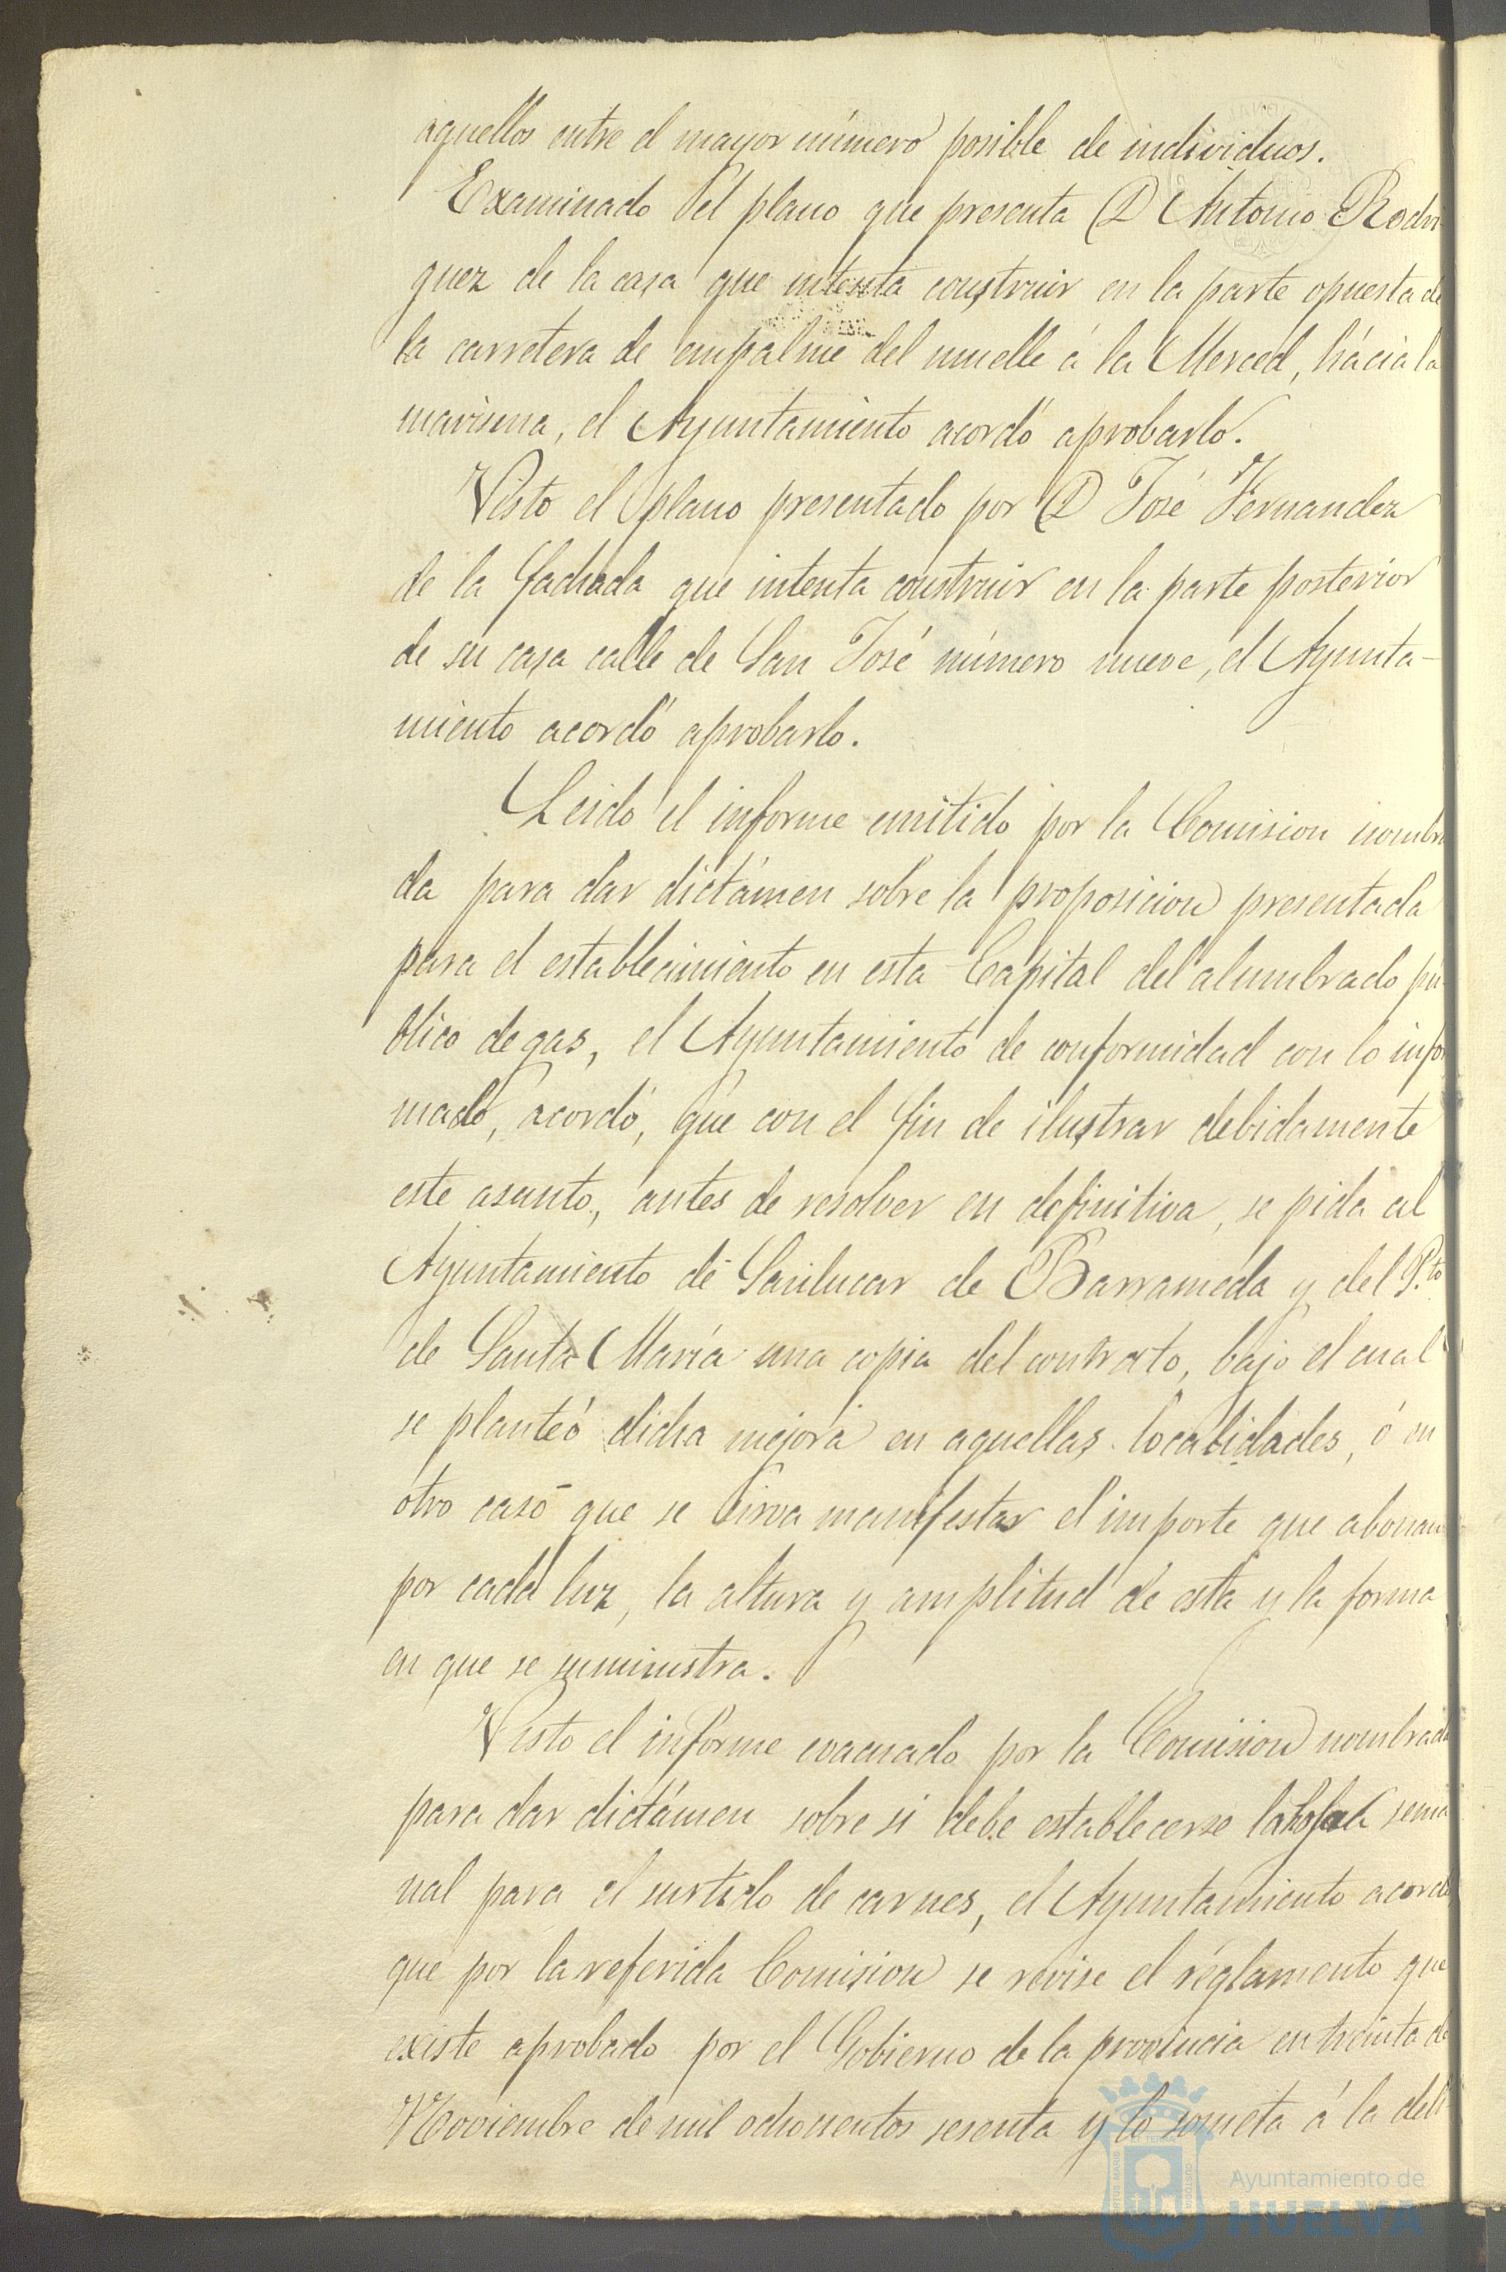 aquellos entre el mayor número posible de individuos.
Examinado el plano que presenta D Antonio Rodri
guez de la casa que intenta construir en la parte opuesta de
la carretera de empalme del muelle á la Merced, hácia la
marisma, el Ayuntamiento acordó aprobarlo.
Visto el plano presentado por D José Fernandez
de la fachada que intenta construir en la parte posterior
de su casa calle de San José número nueve, el Ayunta-
miento acordó aprobarlo.
Leido el informe emitido por la Comision nombra
da para dar dictámen sobre la proposicion presentada
para el establecimiento en esta Capital del alumbrado pú
blico de gas, el Ayuntamiento de conformidad con lo infor
mado, acordó, que con el fin de ilustrar debidamente
este asunto, antes de resolver en definitiva, se pida al
Ayuntamiento de Sanlucar de Barrameda y del P.to
de Santa María una copia del contrato, bajo el cual
se planteó dicha mejora en aquellas localidades, ó en
otro caso que se sirva manifestar el importe que abonan
por cada luz, la altura y amplitud de esta y la forma
en que se suministra.
Visto el informe evacuado por la Comision nombrada
para dar dictámen sobre si debe establecerse la sema
nal para el surtido de carnes, el Ayuntamiento acordó
que por la referida Comision se revise el réglamento que
existe aprobado por el Gobierno de la provincia en treinta de
Noviembre de mil ochocientos sesenta y lo someta á la deli
Ayuntamiento de
HUELVA